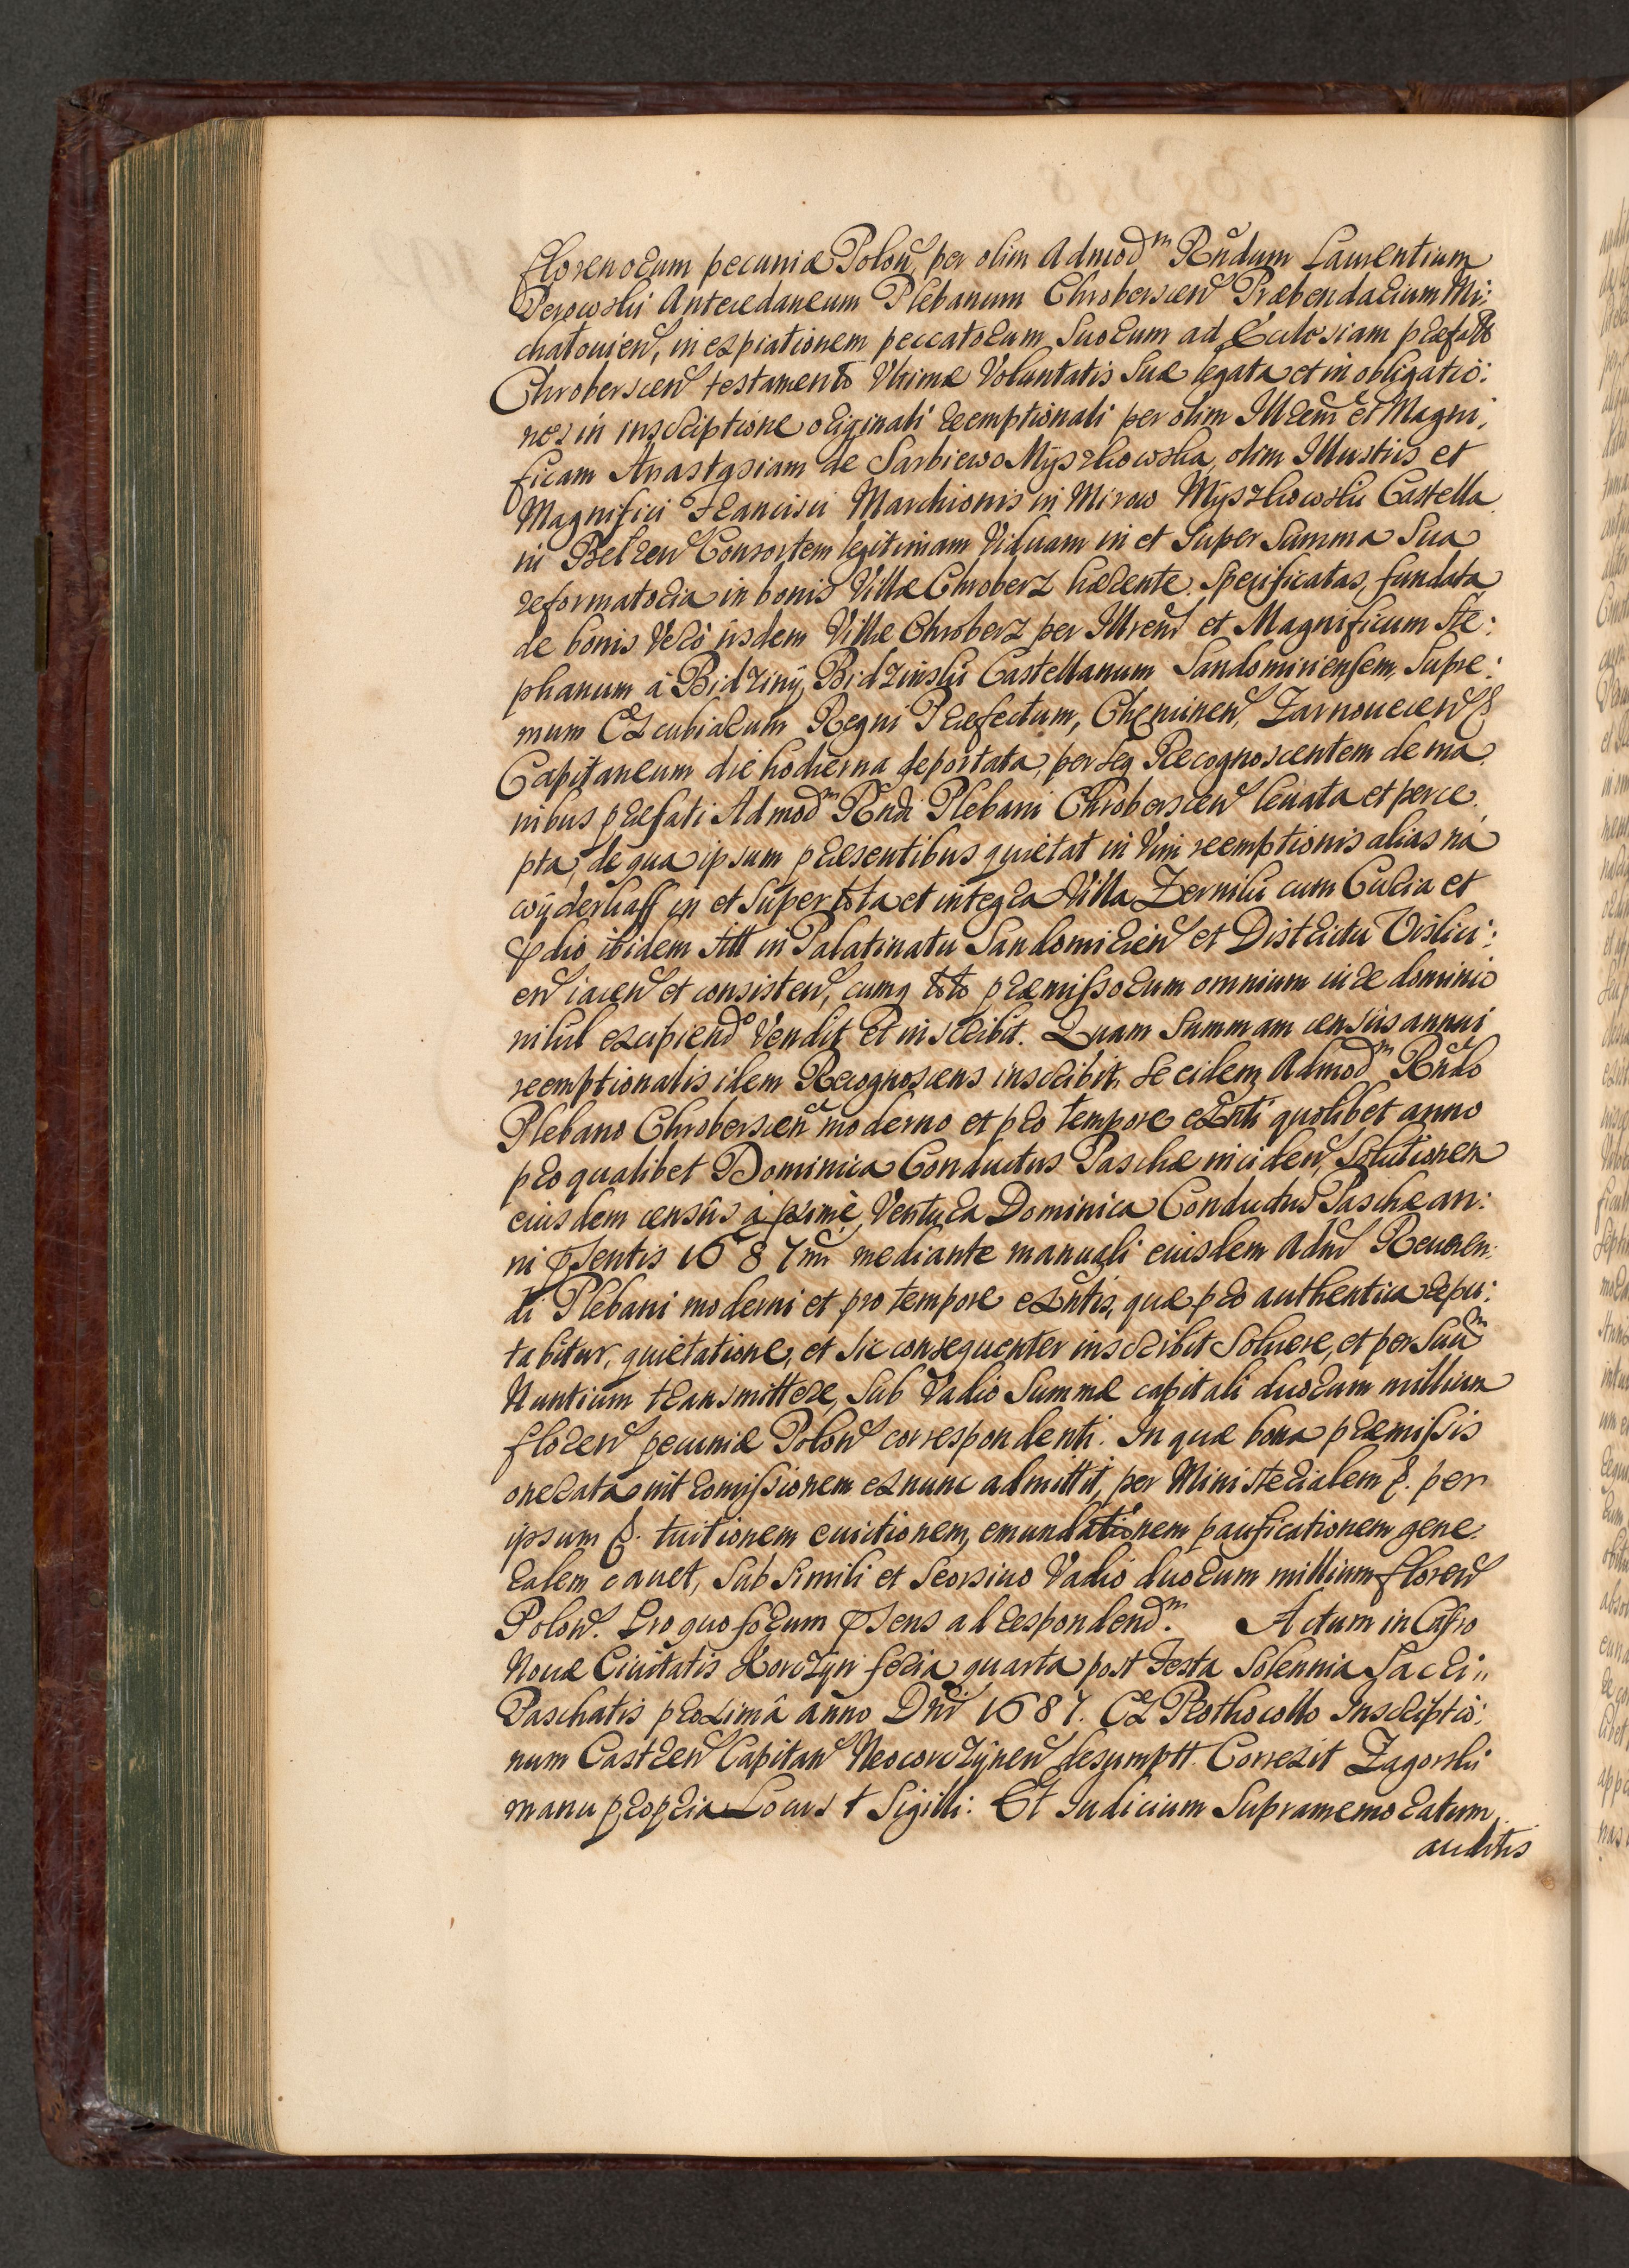 florenorum pecuniæ Polon̄, per olim Admodm Rndum Laurentium
Perowski Antecedaneum Plebanum Chroberscen̄ Præbendarium Mi:
chałouien̄, in expiationem peccatorum Suorum ad Ecclesiam præfatt
Chroberscen̄ testamento Vltimæ Voluntatis Suæ legata et in obligatio:
nes in inscriptione originali reemptionali per olim Illrem et Magni:
ficam Anastasiam de Sarbiewo Myszkowska, olim Illustris et
Magnifici Francisci Marchionis in Mirow Myszkowski Castella
ni Belzen̄ Consortem legitimam Viduam in et Super Summa Sua
reformatoria in bonis Villæ Chroberz hærente. Specificatas, fundata
de bonis Verò iisdem Villæ Chroberz per Illrem et Magnificum Ste:
phanum à Bidziny Bidzinski Castellanum Sandomiriensem, Supre:
mum Excubiarum Regni Præfectum, Chęcinen̄, Zarnouecen̄ &
Capitaneum die hodierna deportata, per Seq Recognoscentem de ma
nibus præfati Admodm Rndi Plebani Chroberscen̄ leuata et perce
pta, de qua ipsum præsentibus quietat in Vim reemptionis alias ná
wÿderkaff in et Super tota et integra Villa Zerniki cum Curia et
Pdio ibidem sitt in Palatinatu Sandomirien̄ et Districtu Vislici:
en̄ iacen̄ et consisten̄, cumq toto præmissorum omnium iure dominio
nihil excipiendo Vendit et inscribit. Quam Summam censûs annui
reemptionalis idem Recognoscens inscribit. Se eidem Admodm Rndo
Plebano Chroberscen̄ moderno et pro tempore exñti quolibet anno
pro qualibet Dominica Conductus Paschæ inciden̄, Solutionem
eiusdem censûs à primè Ventura Dominica Conductus Paschæ an:
ni Psentis 1687mi mediante manuali eiusdem Adm̄ Reueren:
di Plebani moderni et pro tempore exñtis, quæ pro authentica repu:
tabitur, quietatione, et sic consequenter inscribit Soluere, et per Suum
Nuntium transmittere, Sub Vadio Summæ capitali duorum millium
floren̄ pecuniæ Polon̄ correspondenti. In quæ bona præmissis
onerata int romissionem ex nunc admittit, per Ministerialem &. per
ipsum &. tuitionem euictionem, emundationem pacificationem gene
ralem cauet, Sub Simili et Seorsiuo Vadio duorum millium floren̄
Polon̄. Pro quo forum Psens ad respondendm. Actum in Castro
Nouæ Ciuitatis Korczyn feria quarta post Festa Solennia Sacri,,
Paschatis proximâ anno Dni 1687. Ex Prothocollo Inscriptio:
num Castren̄ Capitan̄ Neocorczÿnen̄ desumptt. Correxit Zagorski
manu propria Locus † Sigilli: Et Iudicium Supramemoratum
auditis